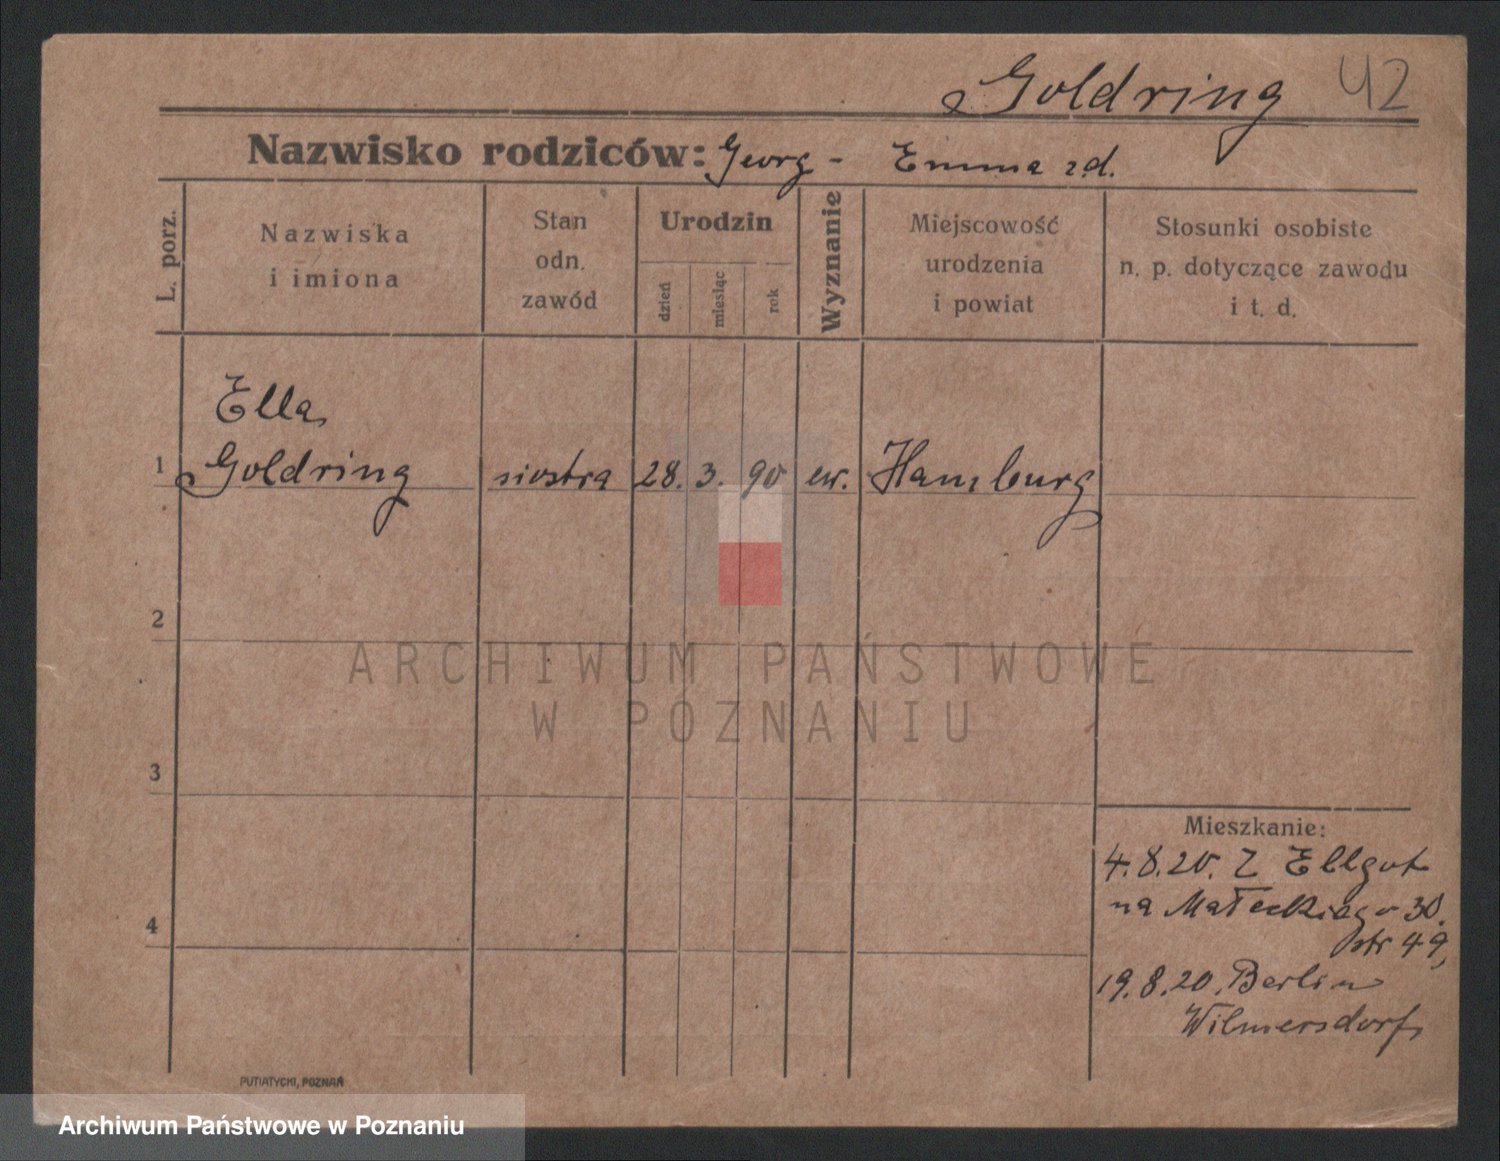 Goldring 42
Nazwisko rodziców: Georg - Emma z d.
L. porz.
Nazwiska
i imiona
Stan
odn.
zawód
Urodzin
dzień
miesiąc
rok
Wyznanie
Miejscowość
urodzenia
i powiat
Stosunki osobiste
n. p. dotyczące zawodu
i t. d.
Ella
1 Goldring siostra 28. 3. 90 ew. Hamburg
2
ARCHIWUM PAŃSTWOWE
W POZNANIU
3
Mieszkanie:
4.8.20. Z Ellgot
na Małeckiego 30.
4
str 49,
19.8.20. Berlin
Wilmersdorf
PUTIATYCKI, POZNAŃ
Archiwum Państwowe w Poznaniu